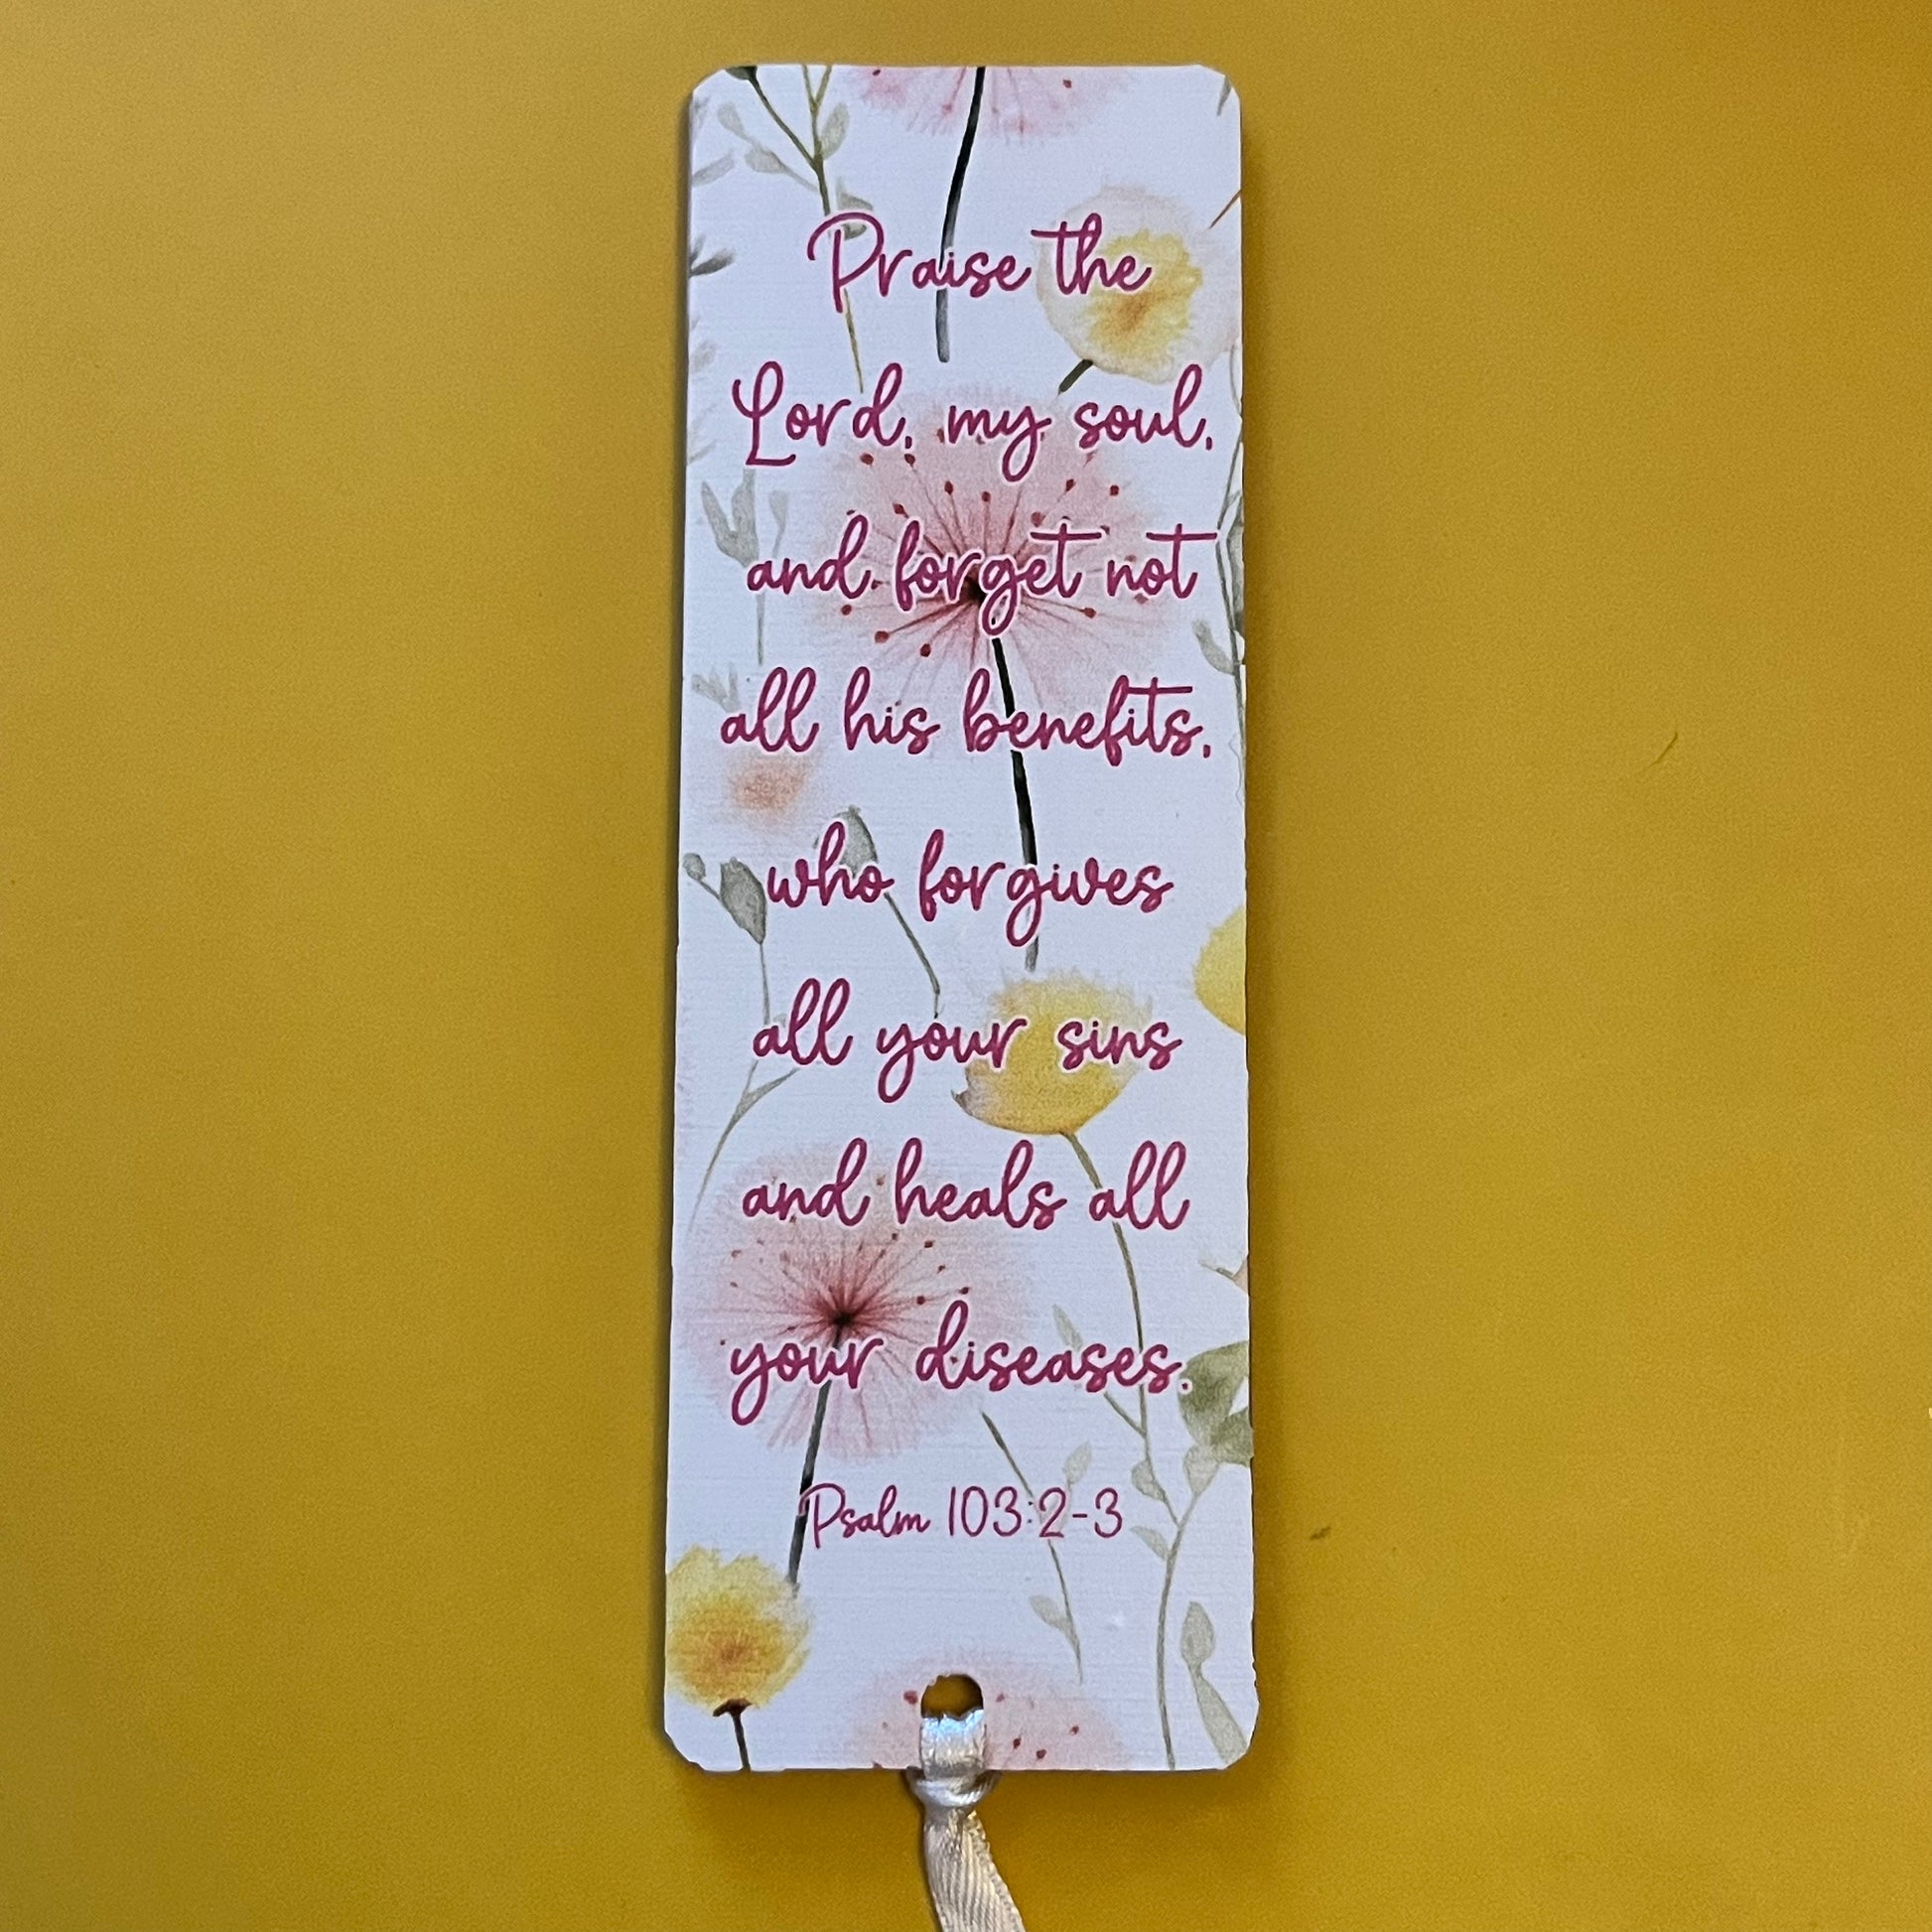 Praise the
Lord, my soul,
and forget not
all his benefits,
who forgives
all your sins
and heals all
your diseases.
Psalm 103:2-3